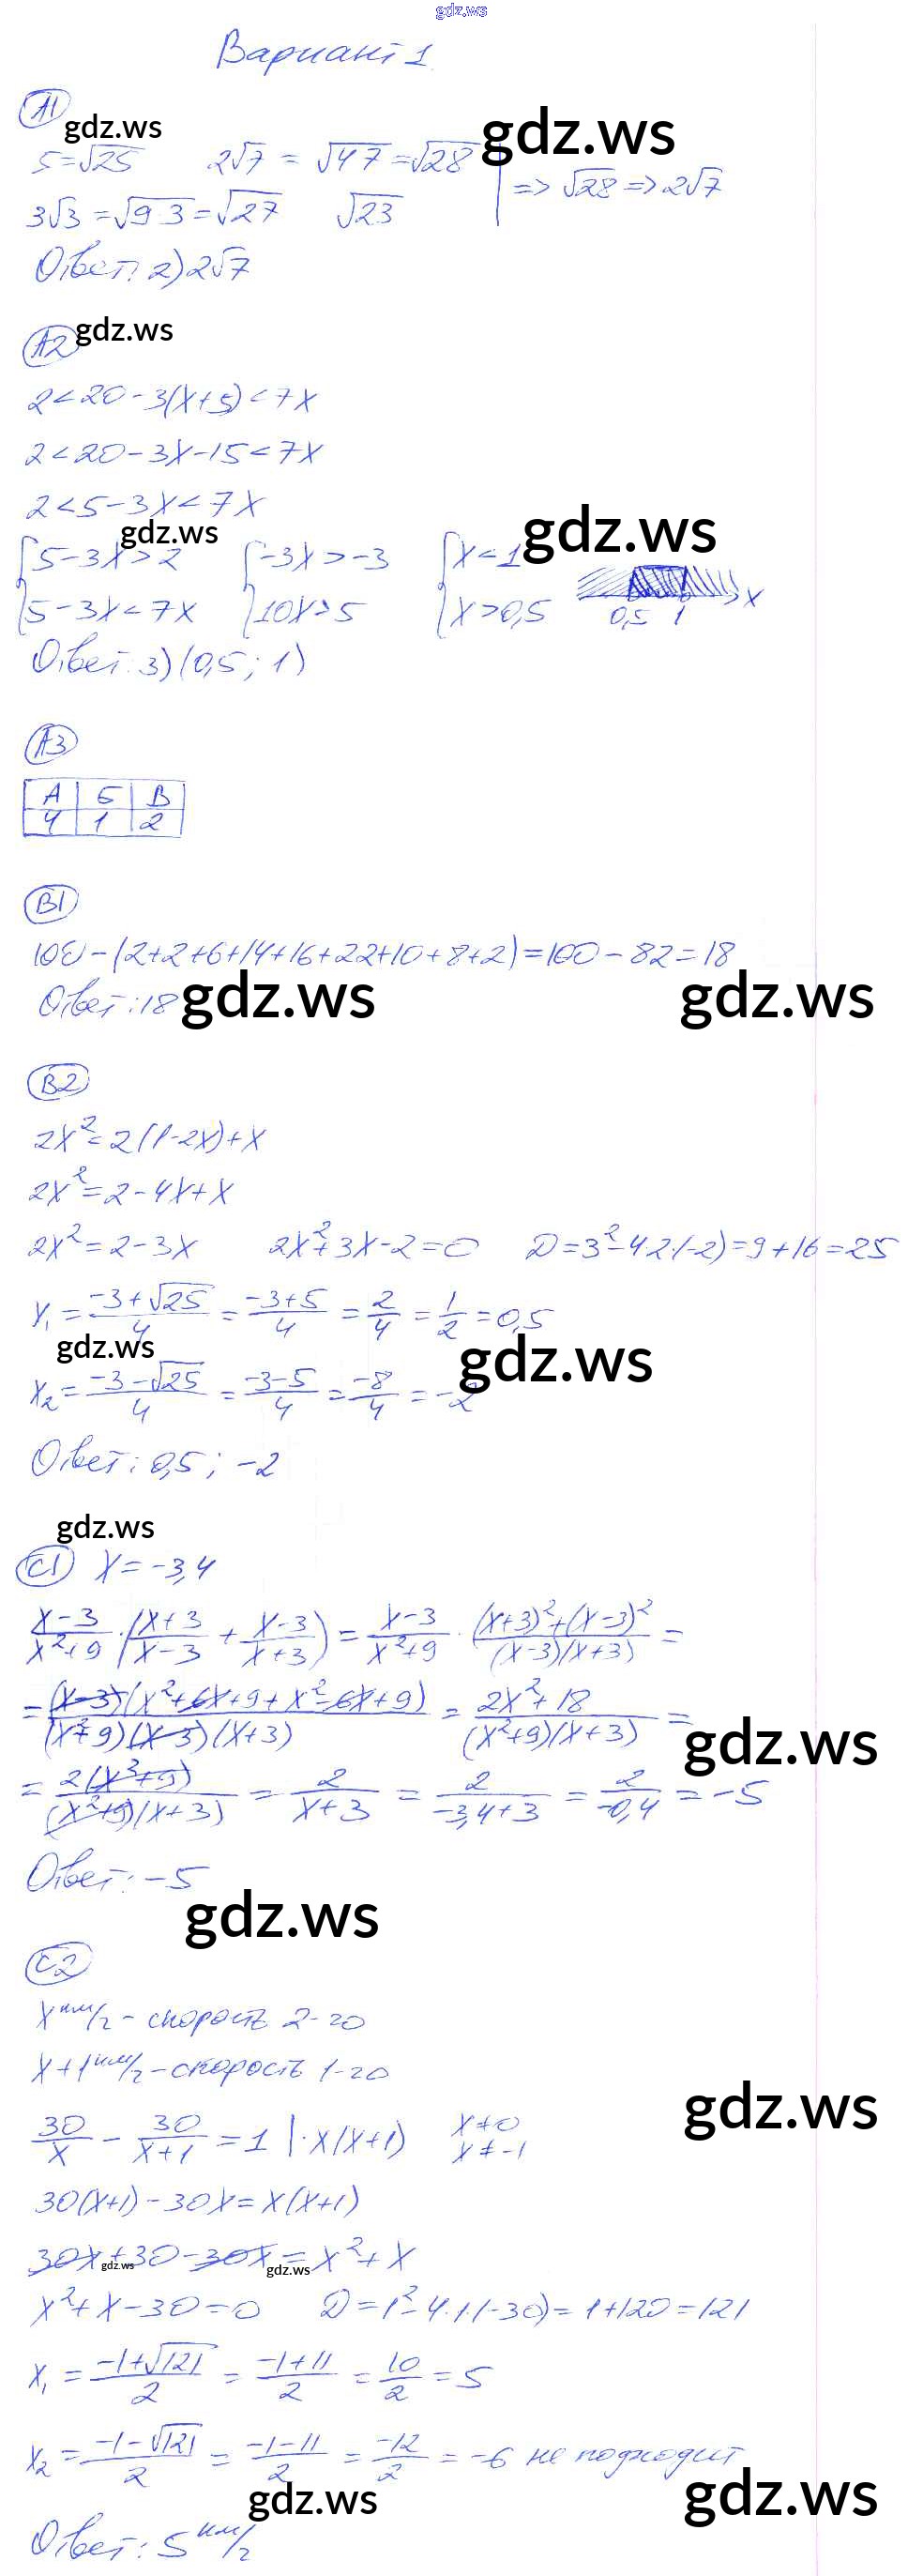 gdz.ws
Вариант 1
А1
gdz.ws
gdz.ws
5=√25 2√7 = √4·7 = √28
3√3 = √9·3 = √27 √23 => √28 => 2√7
Ответ: 2) 2√7
А2
gdz.ws
2<20-3(x+5)<7x
2<20-3x-15<7x
2<5-3x<7x
gdz.ws
gdz.ws
{5-3x>2 {-3x>-3 {x<1
{5-3x<7x {10x>5 {x>0,5 0,5 1 x
Ответ: 3) (0,5; 1)
А3
А Б В
4 1 2
В1
100-(2+2+6+14+16+22+10+8+2)=100-82=18
Ответ: 18
gdz.ws
gdz.ws
В2
2x²=2(1-2x)+x
2x²=2-4x+x
2x²=2-3x 2x²+3x-2=0 D=3²-4·2·(-2)=9+16=25
x₁ = (-3+√25)/4 = (-3+5)/4 = 2/4 = 1/2 = 0,5
gdz.ws
gdz.ws
x₂ = (-3-√25)/4 = (-3-5)/4 = -8/4 = -2
Ответ: 0,5; -2
gdz.ws
С1 x=-3,4
(x-3)/(x²+9) · ((x+3)/(x-3) + (x-3)/(x+3)) = (x-3)/(x²+9) · ((x+3)²+(x-3)²)/((x-3)(x+3)) =
= (x-3)(x²+6x+9+x²-6x+9)/((x²+9)(x-3)(x+3)) = (2x²+18)/((x²+9)(x+3)) =
gdz.ws
= 2(x²+9)/((x²+9)(x+3)) = 2/(x+3) = 2/(-3,4+3) = 2/(-0,4) = -5
Ответ: -5
gdz.ws
С2
x км/г - скорость 2-го
x+1 км/г - скорость 1-го
gdz.ws
30/x - 30/(x+1) = 1 |·x(x+1) x≠0
x≠-1
30(x+1)-30x=x(x+1)
30x+30-30x=x²+x
gdz.ws
gdz.ws
x²+x-30=0 D=1²-4·1·(-30)=1+120=121
x₁ = (-1+√121)/2 = (-1+11)/2 = 10/2 = 5
x₂ = (-1-√121)/2 = (-1-11)/2 = -12/2 = -6 не подходит
gdz.ws
gdz.ws
Ответ: 5 км/г